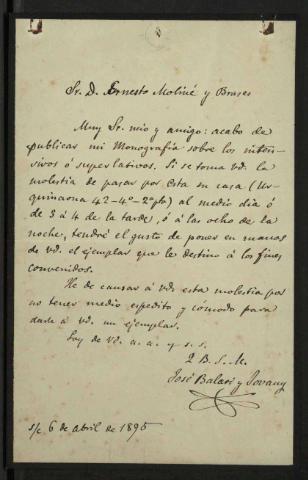 Sr. D. Ernesto Moliné y Brases
Muy Sr. mio y amigo: acabo de
publicar mi Monografía sobre los inten-
sivos ó superlativos. Si se toma vd. la
molestia de pasar por esta su casa (Ur-
quinaona 42-4º-2ª pta) al medio dia ó
de 3 á 4 de la tarde, ó á las ocho de la
noche, tendré el gusto de poner en manos
de vd. el ejemplar que le destino á los fines
convenidos.
He de causar á vd. esta molestia por
no tener medio espedito y cómodo para
darle á vd. un ejemplar.
Soy de vd. a. a. y s. s.
Q. B. S. M.
José Balari y Jovany
s/c 6 de abril de 1895